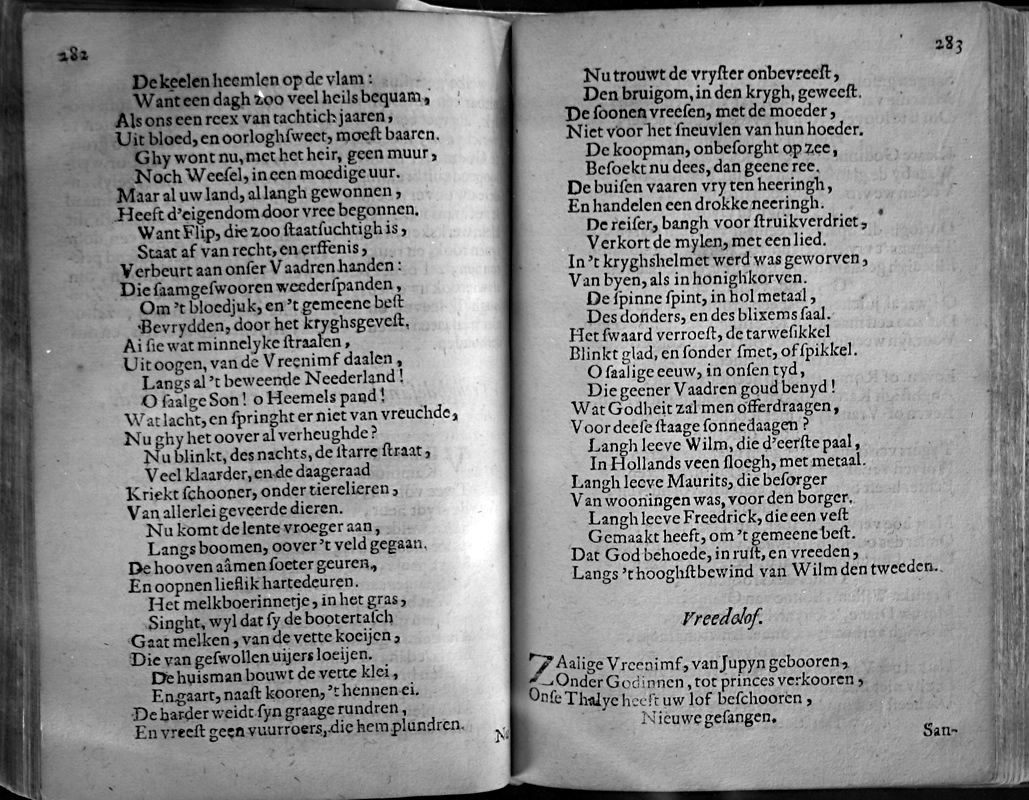 282
De keelen heemlen op de vlam :
Want een dagh zoo veel heils bequam,
Als ons een reex van tachtich jaaren,
Uit bloed, en oorloghſweet, moeſt baaren.
Ghy wont nu, met het heir, geen muur,
Noch Weeſel, in een moedige uur.
Maar al uw land, al langh gewonnen,
Heeft d'eigendom door vree begonnen.
Want Flip, die zoo ſtaatſuchtigh is,
Staat af van recht, en erffenis,
Verbeurt aan onſer Vaadren handen :
Die ſaamgeſwooren weederſpanden,
Om 't bloedjuk, en 't gemeene beſt
Bevrydden, door het kryghsgeveſt.
Ai ſie wat minnelyke ſtraalen,
Uit oogen, van de Vreenimf daalen,
Langs al 't beweende Neederland!
O ſaalge Son! o Heemels pand!
Wat lacht, en ſpringht er niet van vreuchde,
Nu ghy het oover al verheughde?
Nu blinkt, des nachts, de ſtarre ſtraat,
Veel klaarder, en de daageraad
Kriekt ſchooner, onder tierelieren,
Van allerlei geveerde dieren.
Nu komt de lente vroeger aan,
Langs boomen, oover 't veld gegaan.
De hooven aâmen ſoeter geuren,
En oopnen lieflik hartedeuren.
Het melkboerinnetje, in het gras,
Singht, wyl dat ſy de bootertaſch
Gaat melken, van de vette koeijen,
Die van geſwollen uijers loeijen.
De huisman bouwt de vette klei,
En gaart, naaſt kooren, 't hennen ei.
De harder weidt ſyn graage rundren,
En vreeſt geen vuurroers, die hem plundren.
283
Nu trouwt de vryſter onbevreeſt,
Den bruigom, in den krygh, geweeſt.
De ſoonen vreeſen, met de moeder,
Niet voor het ſneuvlen van hun hoeder.
De koopman, onbeſorght op zee,
Beſoekt nu dees, dan geene ree.
De buiſen vaaren vry ten heeringh,
En handelen een drokke neeringh.
De reiſer, bangh voor ſtruikverdriet,
Verkort de mylen, met een lied.
In 't kryghshelmet werd was geworven,
Van byen, als in honighkorven.
De ſpinne ſpint, in hol metaal,
Des donders, en des blixems ſaal.
Het ſwaard verroeſt, de tarweſikkel
Blinkt glad, en ſonder ſmet, of ſpikkel.
O ſaalige eeuw, in onſen tyd,
Die geener Vaadren goud benyd!
Wat Godheit zal men offerdraagen,
Voor deeſe ſtaage ſonnedaagen?
Langh leeve Wilm, die d'eerſte paal,
In Hollands veen ſloegh, met metaal.
Langh leeve Maurits, die beſorger
Van wooningen was, voor den borger.
Langh leeve Freedrick, die een veſt
Gemaakt heeft, om 't gemeene beſt.
Dat God behoede, in ruſt, en vreeden,
Langs 't hooghſt bewind van Wilm den tweeden.
Vreedelof.
ZAalige Vreenimf, van Jupyn gebooren,
Onder Godinnen, tot princes verkooren,
Onſe Thalye heeft uw lof beſchooren,
Nieuwe geſangen.
San-